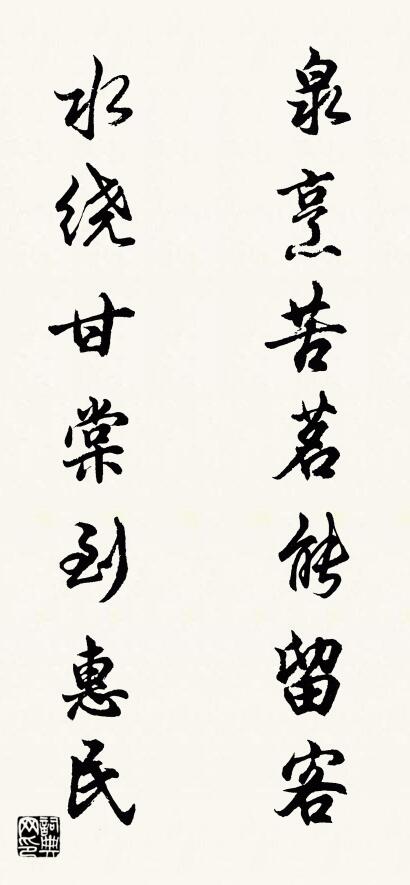 泉烹苦茗能留客
水绕甘棠到惠民
詞典网印